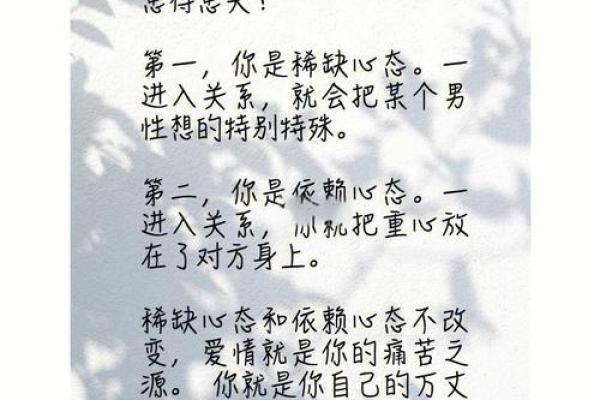 患得患失！
第一，你是稀缺心态。一
进入关系，就会把某个男
性想的特别特殊。
第二，你是依赖心态。一
进入关系，你就把重心放
在了对方身上。
稀缺心态和依赖心态不改
变，爱情就是你的痛苦之
源。 你就是你自己的万丈